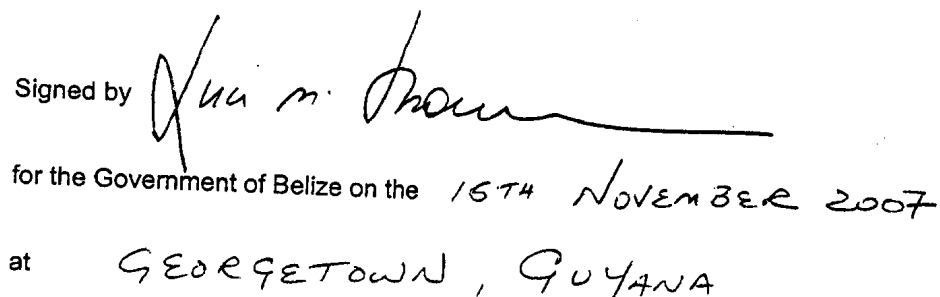 Signed by
for the Government of Belize on the 15TH NOVEMBER 2007
at GEORGETOWN, GUYANA